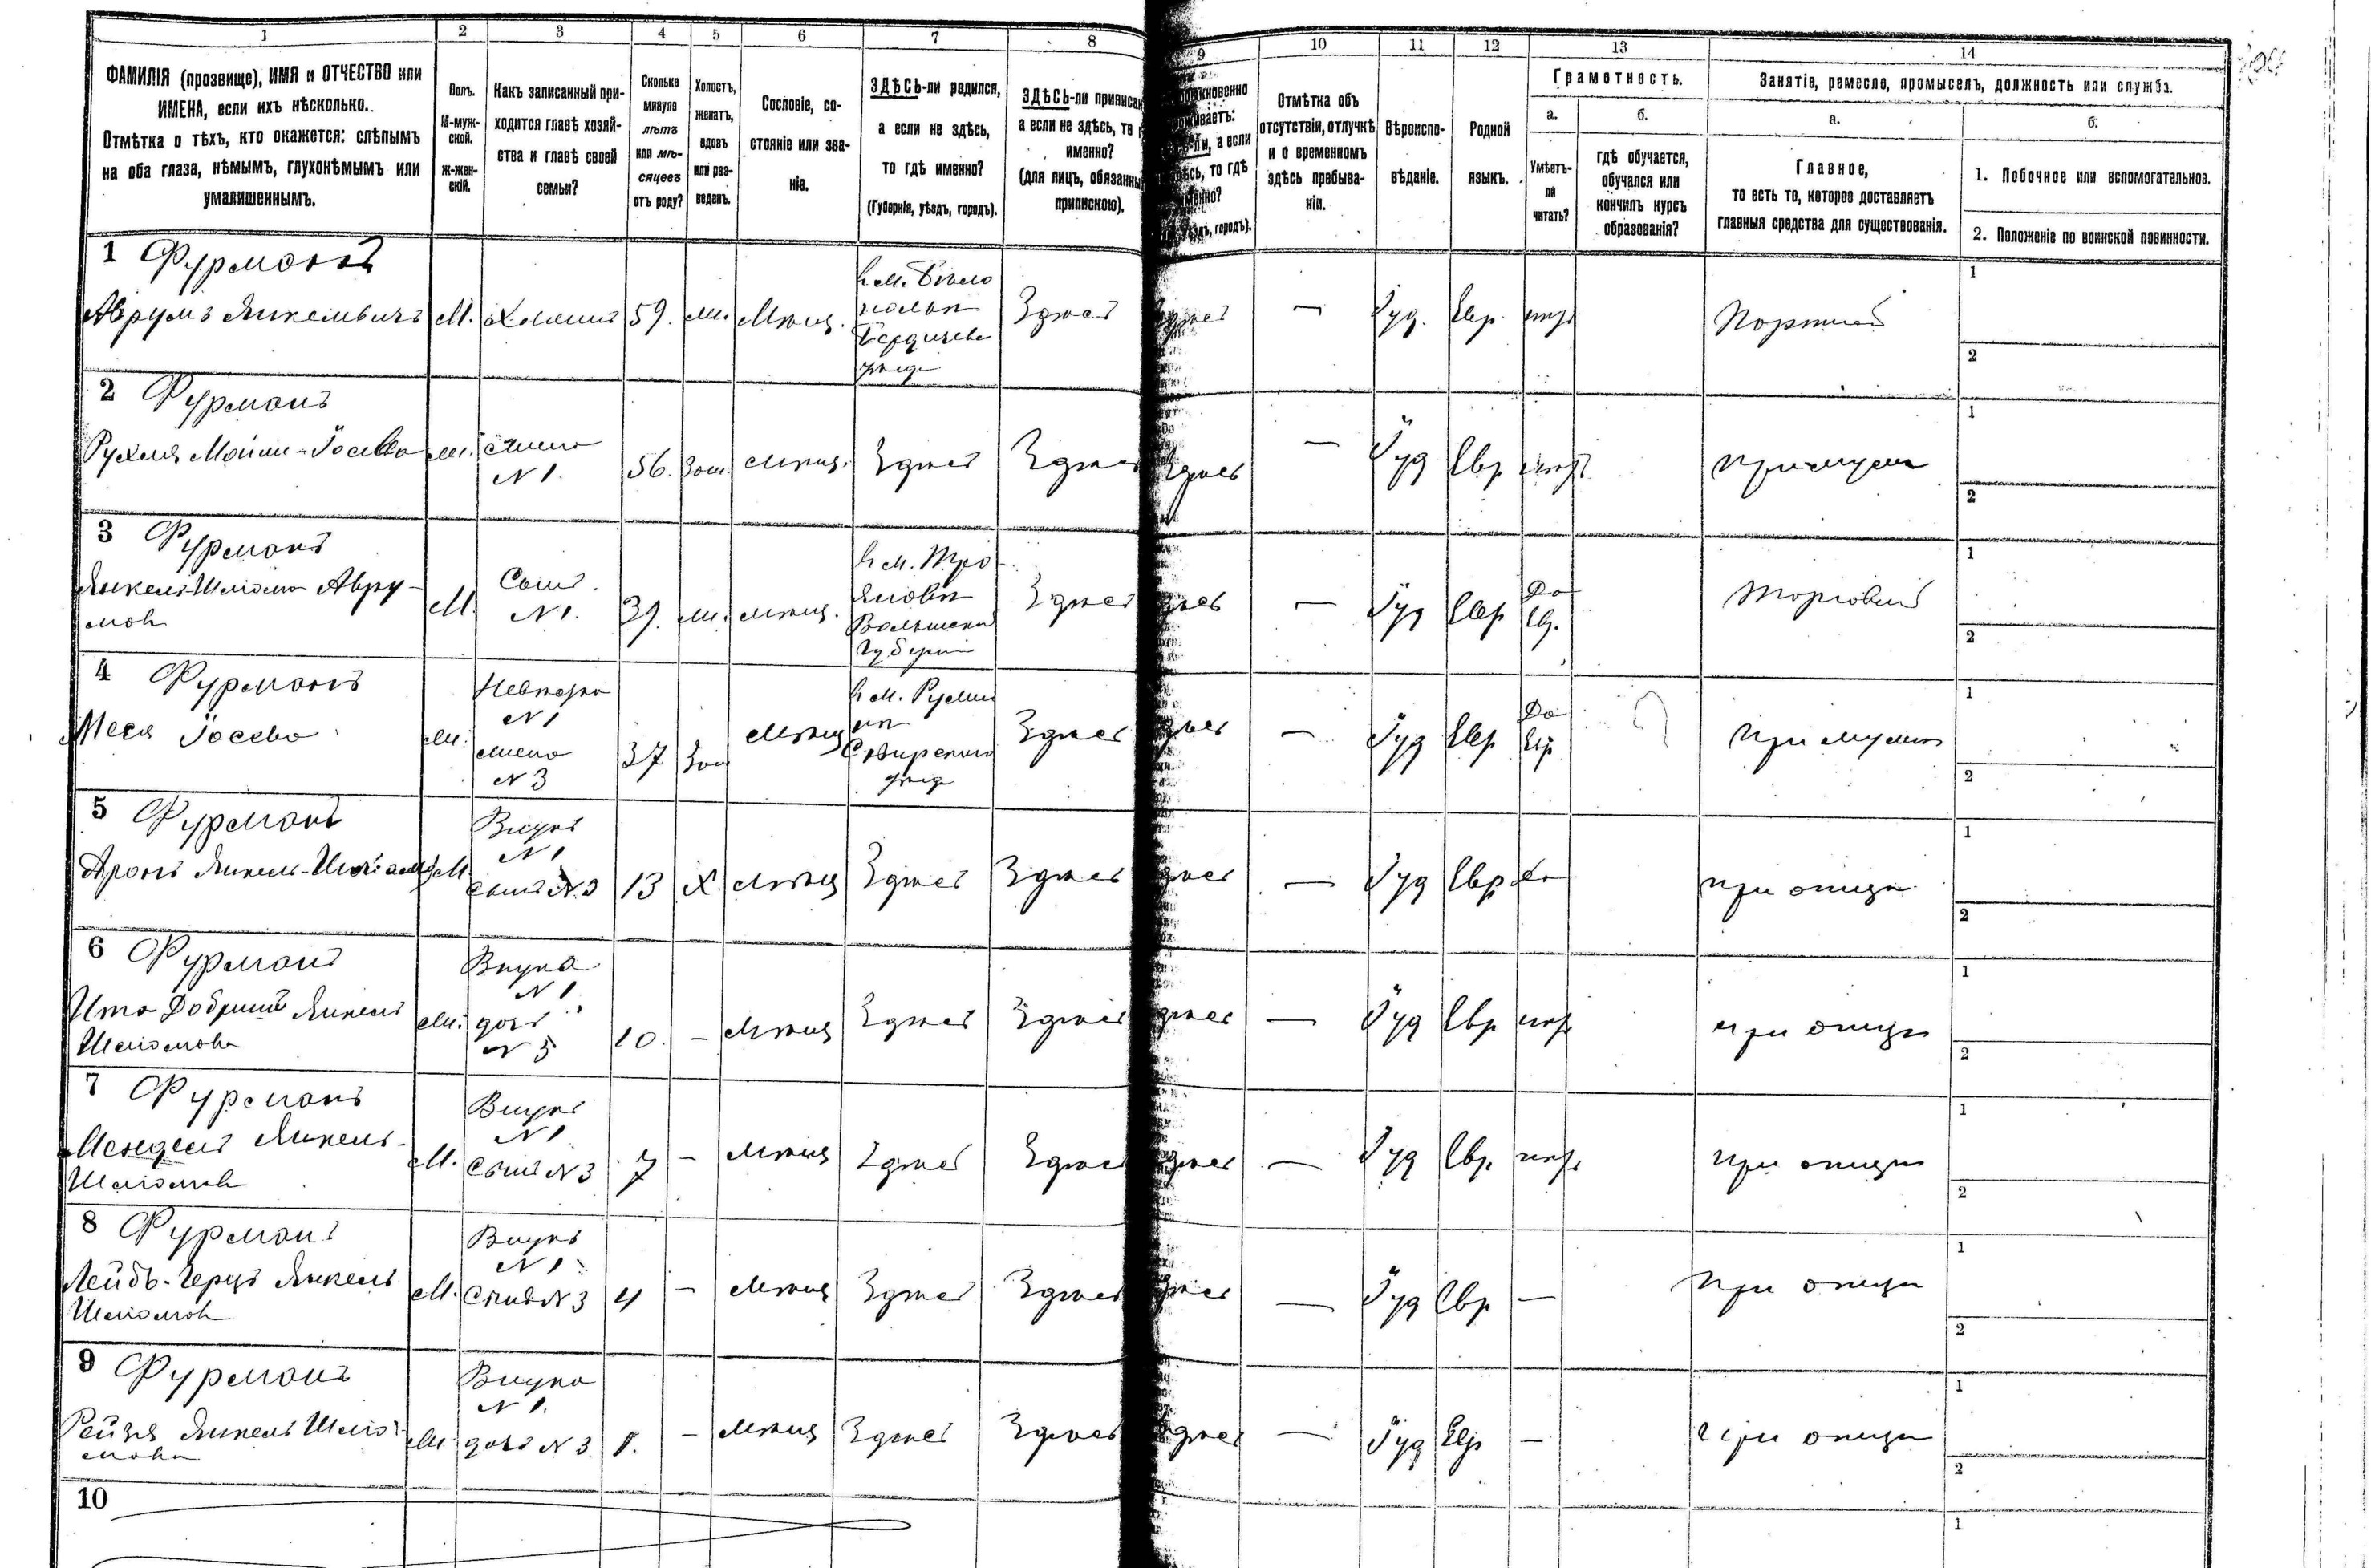 1 2 3 4 5 6 7 8 9 10 11 12 13 14
ФАМИЛІЯ (прозвище), ИМЯ и ОТЧЕСТВО или
ИМЕНА, если ихъ нѣсколько.
Отмѣтка о тѣхъ, кто окажется: слѣпымъ
на оба глаза, нѣмымъ, глухонѣмымъ или
умалишеннымъ.
Полъ.
М-муж-
ской.
Ж-жен-
скій.
Какъ записанный при-
ходится главѣ хозяй-
ства и главѣ своей
семьи?
Сколько
минуло
лѣтъ
или мѣ-
сяцевъ
отъ роду?
Холостъ,
женатъ,
вдовъ
или раз-
веденъ.
Сословіе, со-
стояніе или зва-
ніе.
ЗДѢСЬ-ли родился,
а если не здѣсь,
то гдѣ именно?
(Губернія, уѣздъ, городъ).
ЗДѢСЬ-ли приписан
а если не здѣсь, то г
именно?
(для лицъ, обязанны
припискою).
, а если
то гдѣ
городъ).
Отмѣтка объ
отсутствіи, отлучкѣ
и о временномъ
здѣсь пребыва-
ніи.
Вѣроиспо-
вѣданіе.
Родной
языкъ.
Грамотность.
а.
Умѣетъ-
ли
читать?
б.
гдѣ обучается,
обучался или
кончилъ курсъ
образованія?
Занятіе, ремесло, промыселъ, должность или служба.
а.
Главное,
то есть то, которое доставляетъ
главныя средства для существованія.
б.
1. Побочное или вспомогательное.
2. Положеніе по воинской повинности.
1 Фурманъ
Аврумъ Янкелевичъ М. 59. Мѣщ.
Бердичев
Здѣсь — Іуд. Евр. Портной
1
2
2 Фурманъ
Рухля
N 1. 56. Зам. Мѣщ. Здѣсь Здѣсь Здѣсь — Іуд Евр при мужѣ
1
2
3 Фурманъ
Янкель-Шлiома Авру-
мов М. Сынъ
N 1. мѣщ.
Волынской
Губерніи
Здѣсь — Іуд Евр Да
Евр. Торговля
1
2
4 Фурманъ
Меся Іосева
Невѣстка
N 1
жена
N 3 37 Зам Мѣщ
Сквирского
уѣзд
Здѣсь — Іуд Евр Да
Евр при мужѣ
1
2
5 Фурманъ
Аронъ Янкель-Шліом М
Внукъ
N 1
сынъ N 3 13 Х. Мѣщ Здѣсь Здѣсь — Іуд Евр при отцѣ
1
2
6 Фурманъ
Ита Добришъ Янкель
Шліомова
Внука
N 1
дочь
10. — Мѣщ Здѣсь Здѣсь — Іуд Евр при отцѣ
1
2
7 Фурманъ
Мендель Янкель-
Шліомов М.
Внукъ
N 1
сынъ N 3 7 — Мѣщ Здѣсь Здѣсь — Іуд Евр. при отцѣ
1
2
8 Фурманъ
Лейбъ-Герцъ Янкель
Шліомов М.
Внукъ
N 1
сынъ N 3 4 — Мѣщ Здѣсь Здѣсь — Іуд Евр — при отцѣ
1
2
9 Фурманъ
Рейзя Янкель Шліо-
мова
Внука
N 1.
дочь N 3. 1. — Мѣщ Здѣсь Здѣсь — Іуд Евр — при отцѣ
1
2
10
1